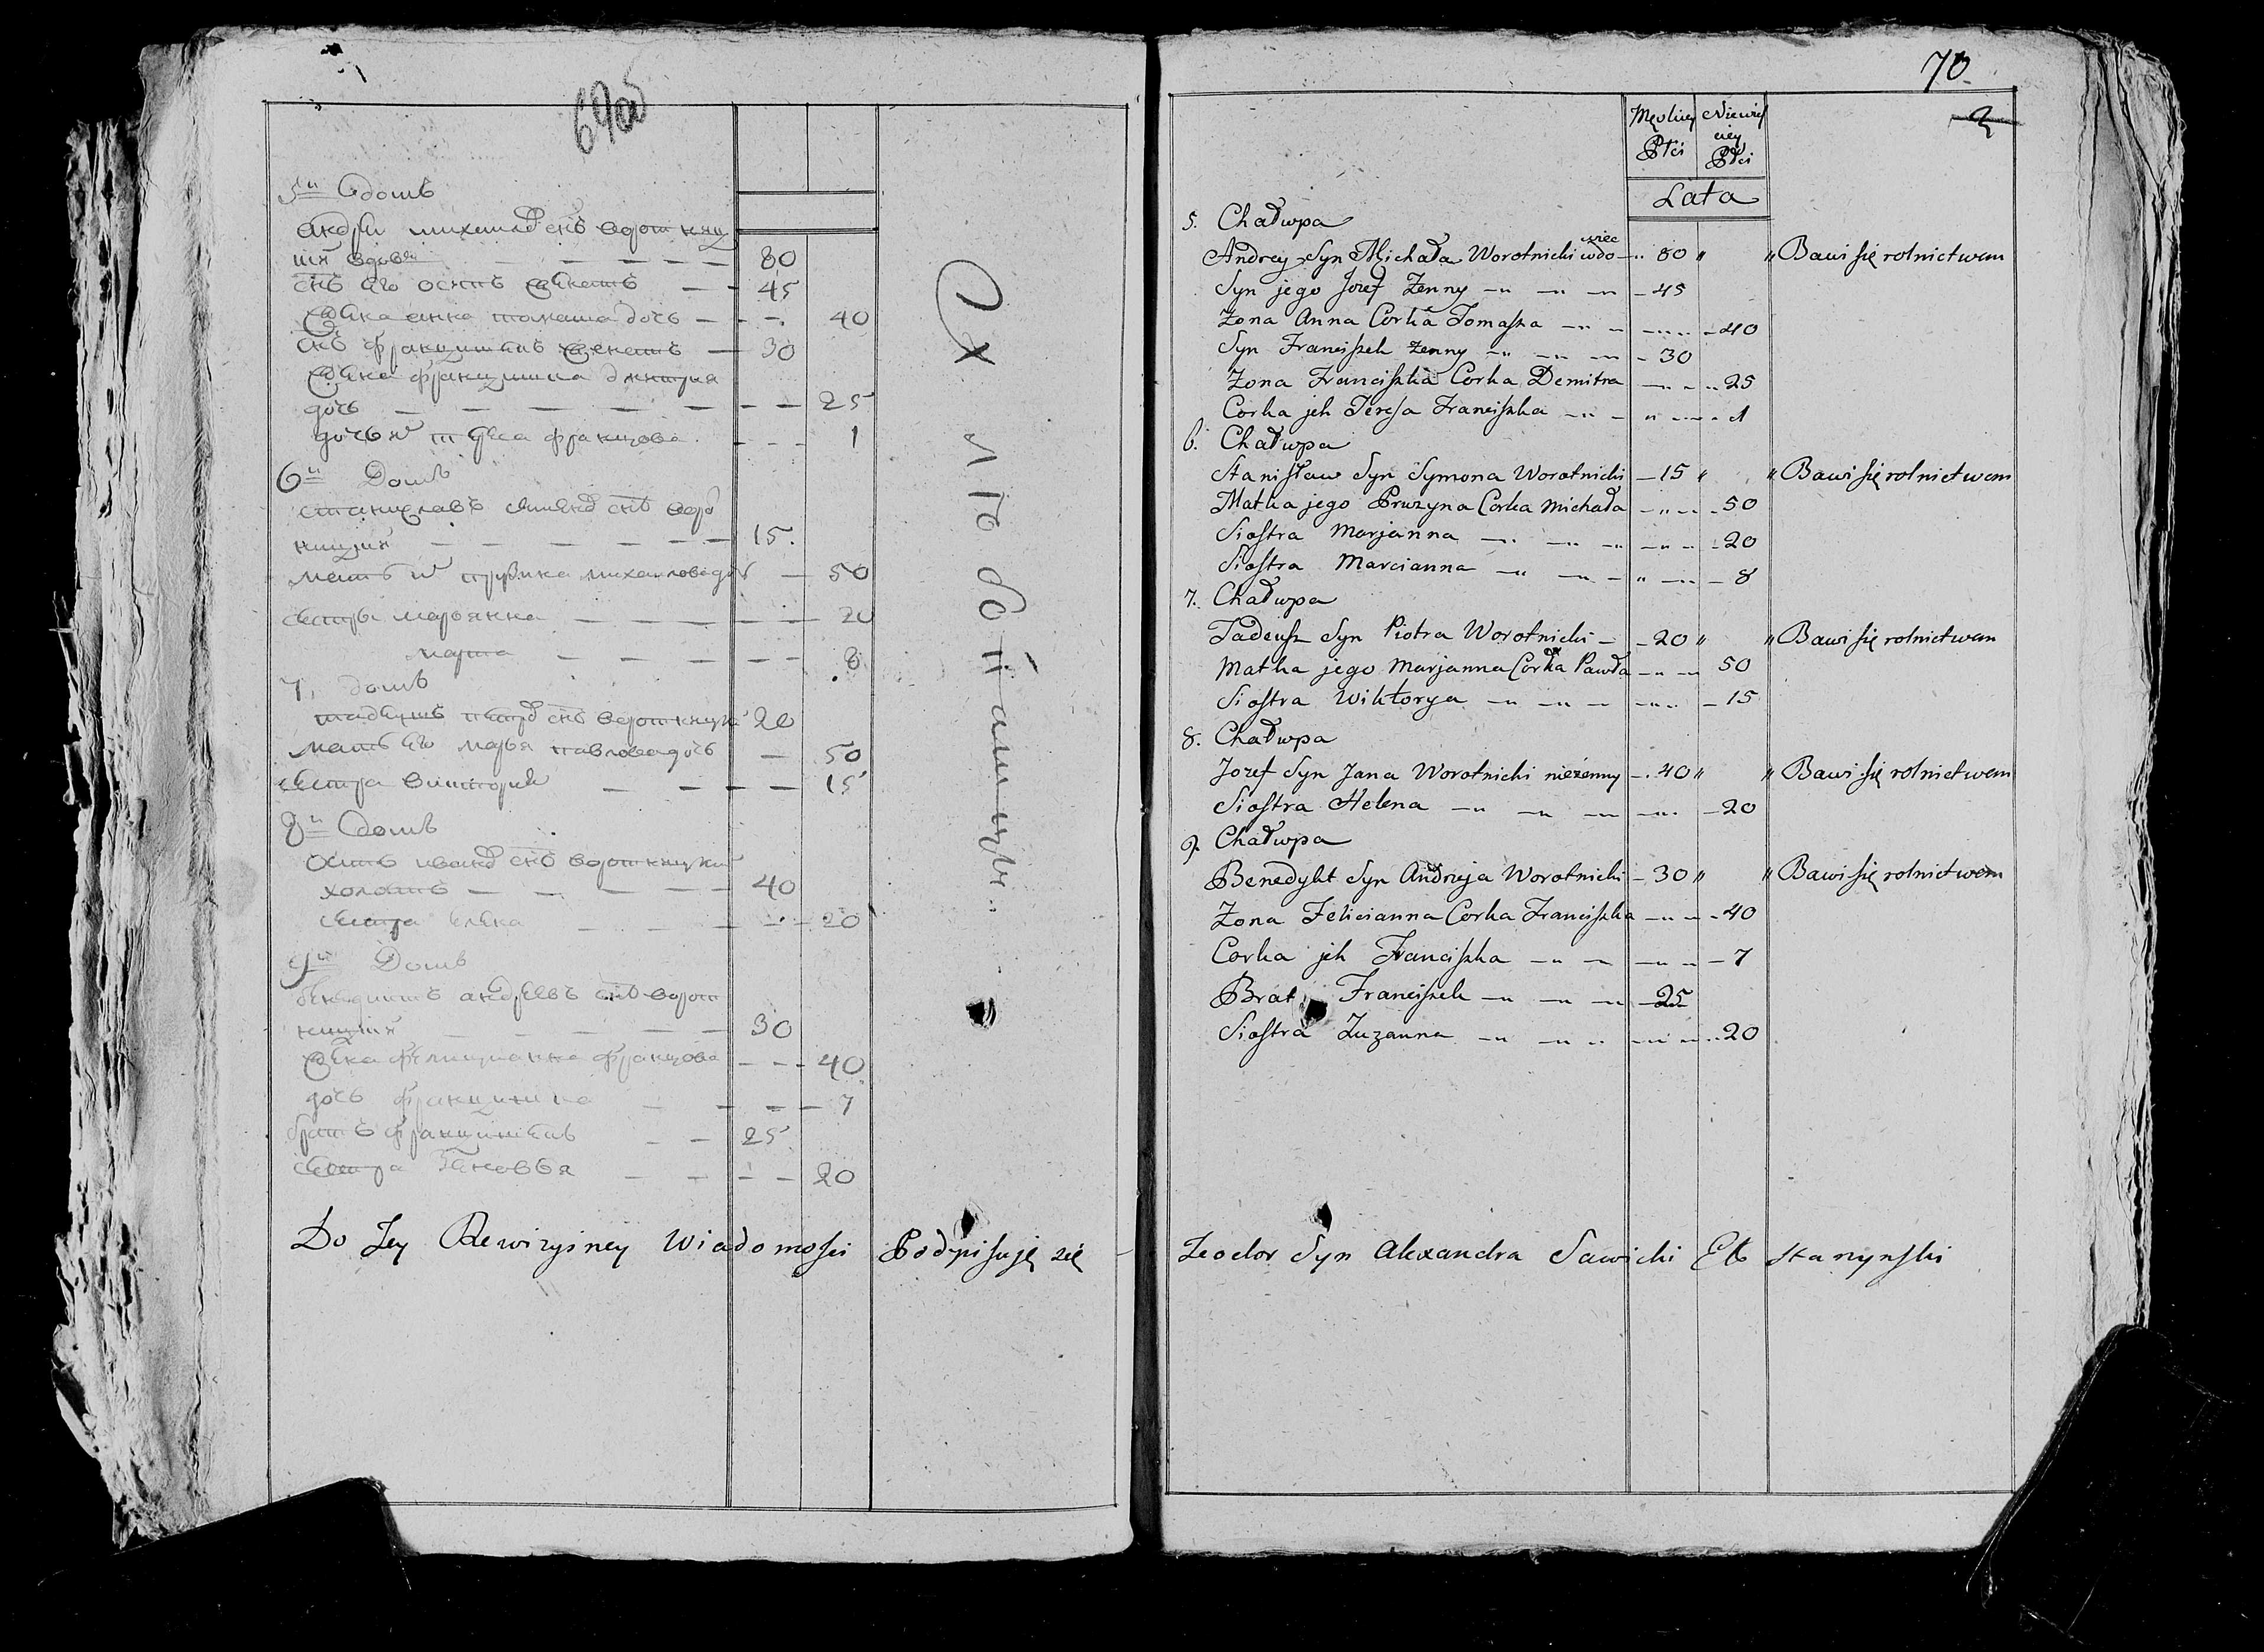 69об
5й Домъ
андрей михайлов снъ воротниц
кiй вдовы — 80
снъ его осипъ женатъ — 45
жена анна томаша дочь — 40
снъ францишекъ женатъ — 30
жена францишка дмитрия
дочь — 25
дочь их тереса францова — 1
6й Домъ
станиславъ снъ
ницкий — 15
мать его михайлова дочь — 50
сестры марьянна — 20
марта — 8
7й домъ
тадеушъ петров снъ воротницкий 20
мать его марья павлова дочь — 50
сестра виктория — 15
8й Домъ
Осипъ иванов снъ воротницкий
холостъ — 40
сестра елена — 20
9й Домъ
бенедиктъ андреевъ снъ ворот
ницкий — 30
жена фелицианна францова — 40
дочь францишка — 7
братъ францишекъ — 25
сестра — 20
Хлебопашцы
Do Jey Rewizyiney Wiadomosci Podpisuję się
70
2
Męskiey Płci
Niewieściey Płci
Lata
5. Chałupa
Andrzey Syn Michała Worotnicki wdowiec — 80 " " Bawi się rolnictwem
Syn jego Jozef Zenny — 45
Zona Anna Corka Tomasza — 40
Syn Franciszek Zenny — 30
Zona Franciszka Corka Demitra — 25
Corka jch Teresa Franciszka — 1
6. Chałupa
Stanisław Syn Symona Worotnicki — 15 " " Bawi się rolnictwem
Matka jego Pruzyna Corka Michała — 50
Siostra Marjanna — 20
Siostra Marcianna — 8
7. Chałupa
Tadeusz Syn Piotra Worotnicki — 20 " " Bawi się rolnictwem
Matka jego Marjanna Corka Pawła — 50
Siostra Wiktorya — 15
8. Chałupa
Jozef Syn Jana Worotnicki nieżenny — 40 " " Bawi się rolnictwem
Siostra Helena — 20
9. Chałupa
Benedykt Syn Andrzeja Worotnicki — 30 " " Bawi się rolnictwem
Zona Felicianna Corka Franciszka — 40
Corka jch Franciszka — 7
Brat Franciszek — 25
Siostra Zuzanna — 20
Teodor Syn Alexandra Sawicki